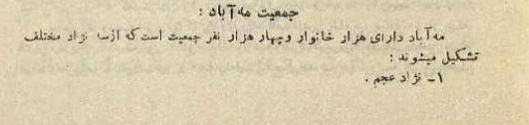 جمعیت مه‌آباد :
مه‌آباد دارای هزار خانوار وچهار هزار نفر جمعیت است که ازسه نژاد مختلف
تشکیل میشوند :
۱ـ نژاد عجم .